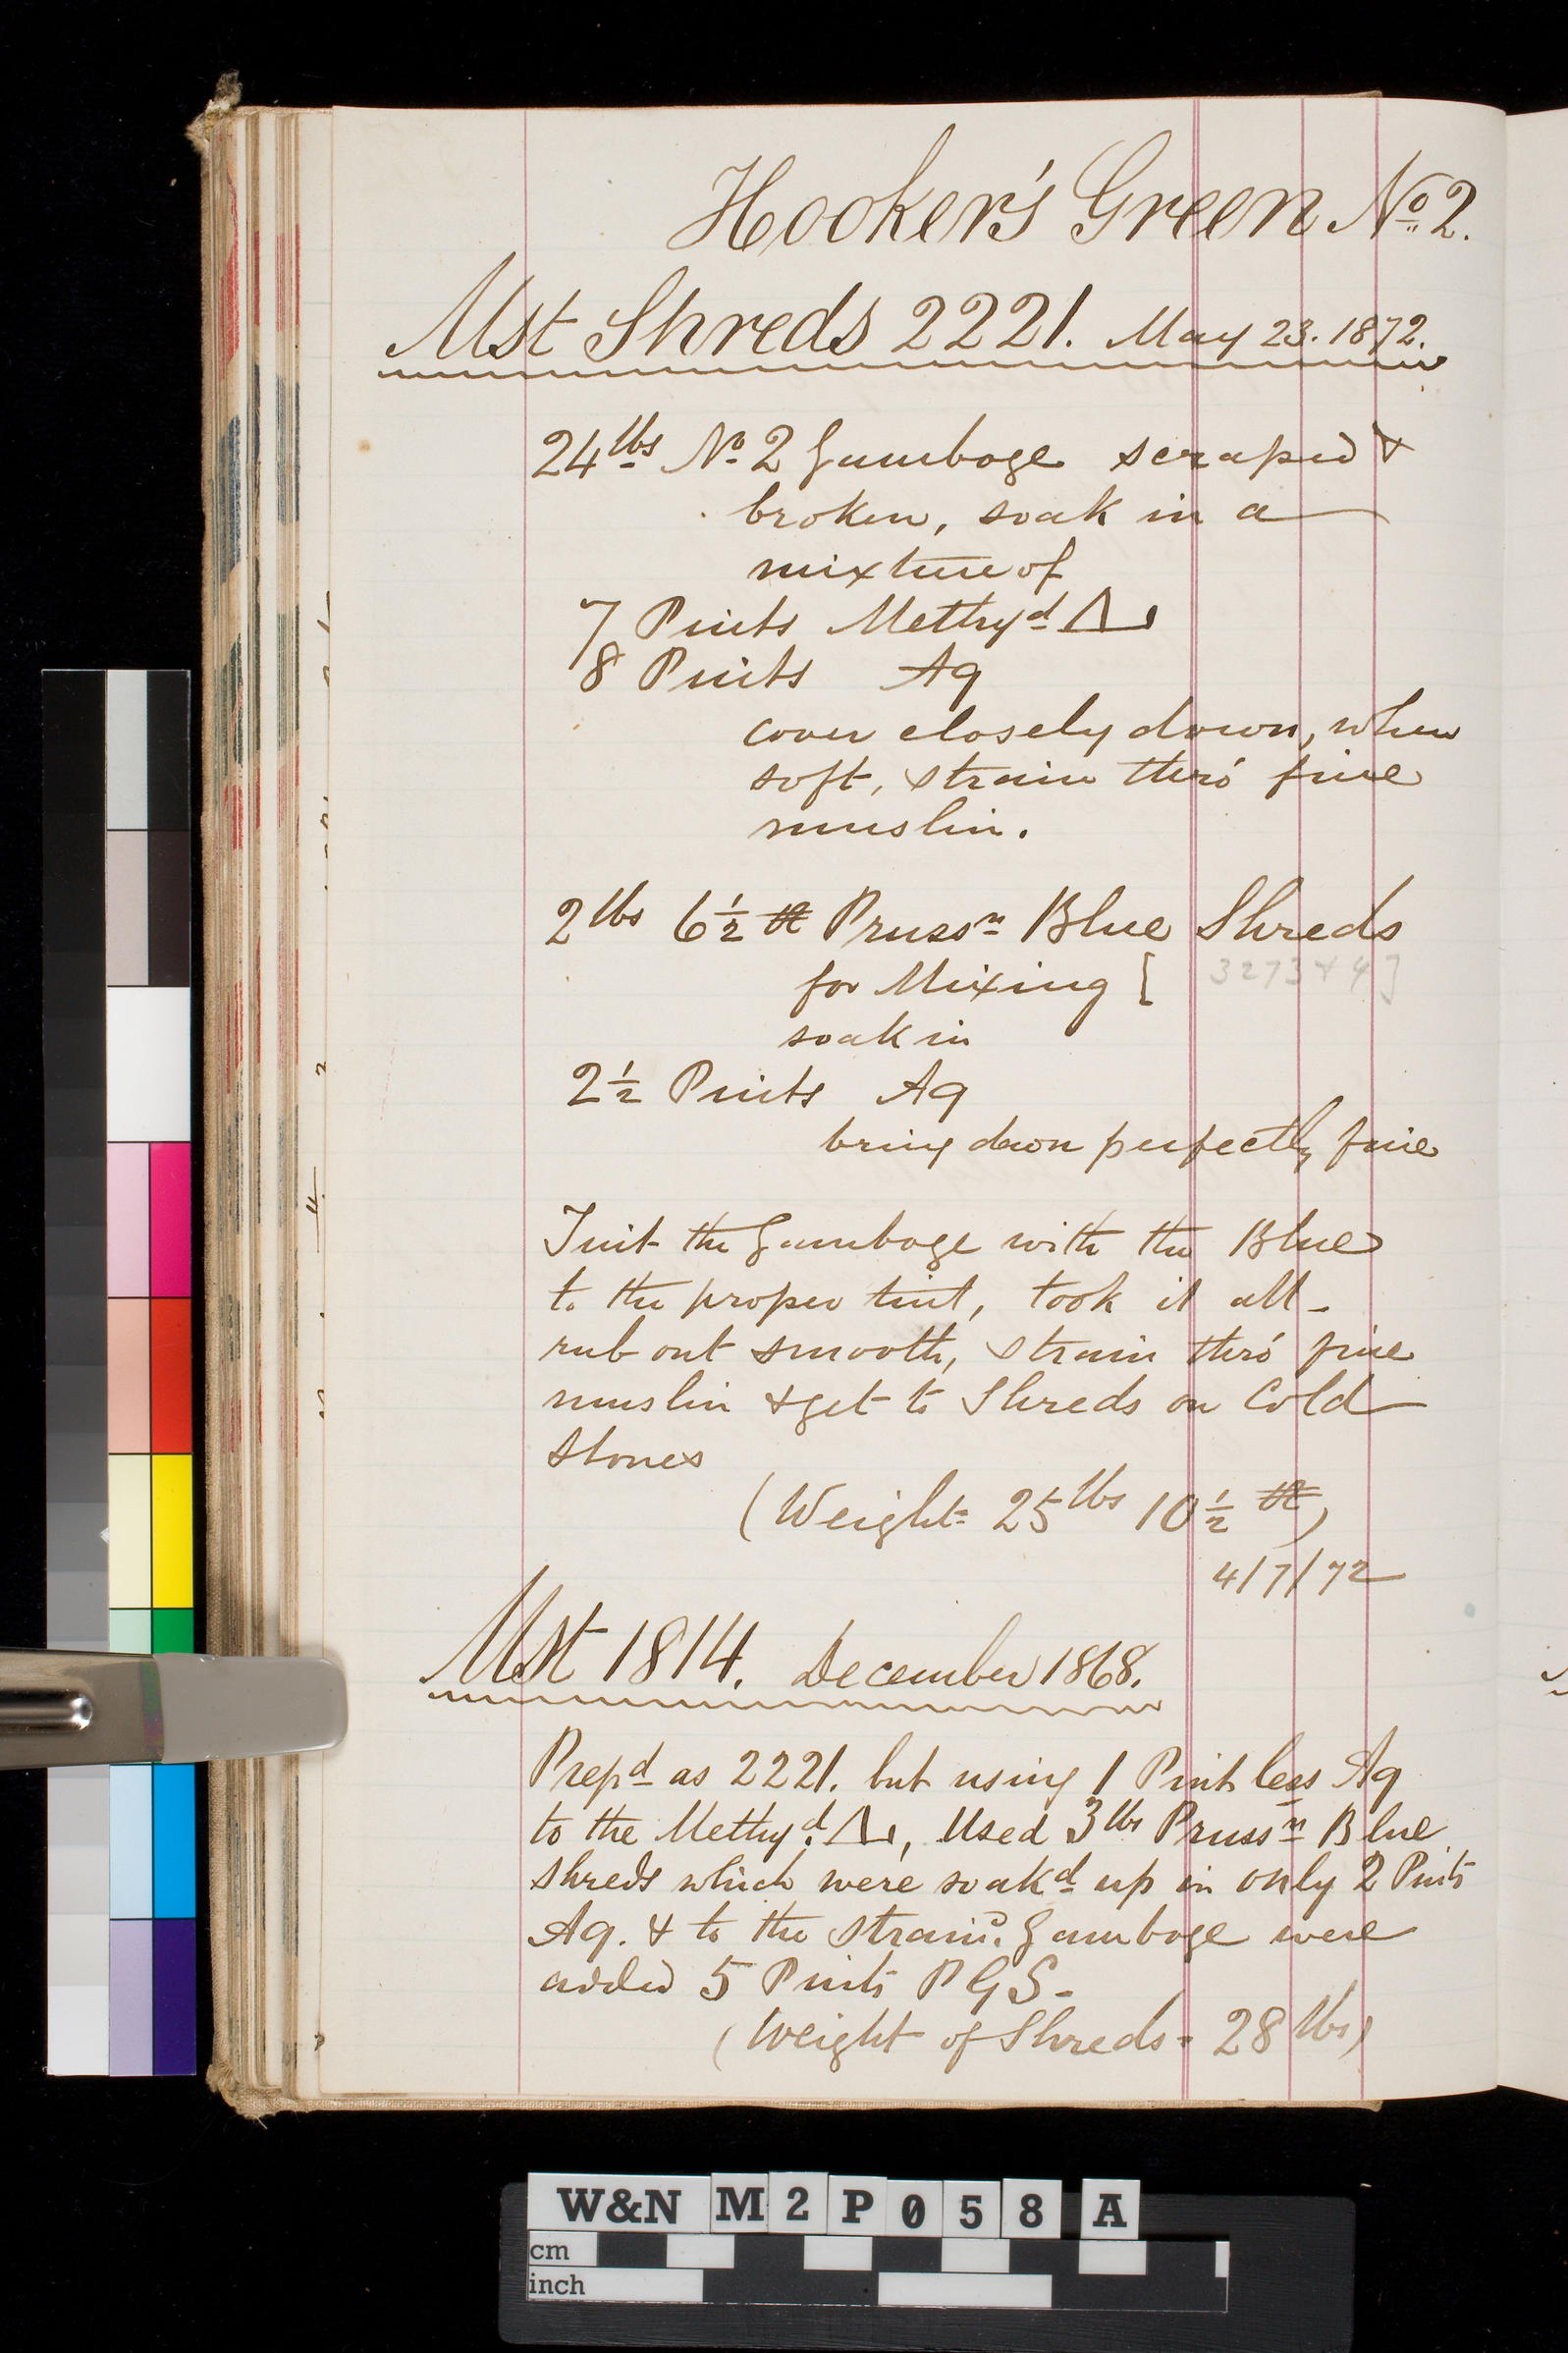 Hooker's Green No. 2.
Mst Shreds 2221. May 23. 1872.
24 lbs No 2 Gamboge scraped &
broken, soak in a
mixture of
7 Pints Methyd
8 Pints Aq
cover closely down, when
soft, strain thro' fine
muslin.
2 lbs 6½ Prussn Blue Shreds
for Mixing [ 3273 & 4 ]
soak in
2½ Pints Aq
bring down perfectly fine
Tint the Gamboge with the Blue
to the proper tint, took it all -
rub out smooth, strain thro' fine
muslin & get to Shreds on Cold
Stones
(Weight = 25 lbs 10½ )
4/7/72
Mst 1814. December 1868.
Prepd as 2221. but using 1 Pint less Aq
to the Methyd. , Used 3 lbs Prussn Blue
shreds which were soakd up in only 2 Pints
Aq. & to the straind. Gamboge were
added 5 Pints P G S -
(Weight of Shreds = 28 lbs)
W&N M2P058A
cm
inch